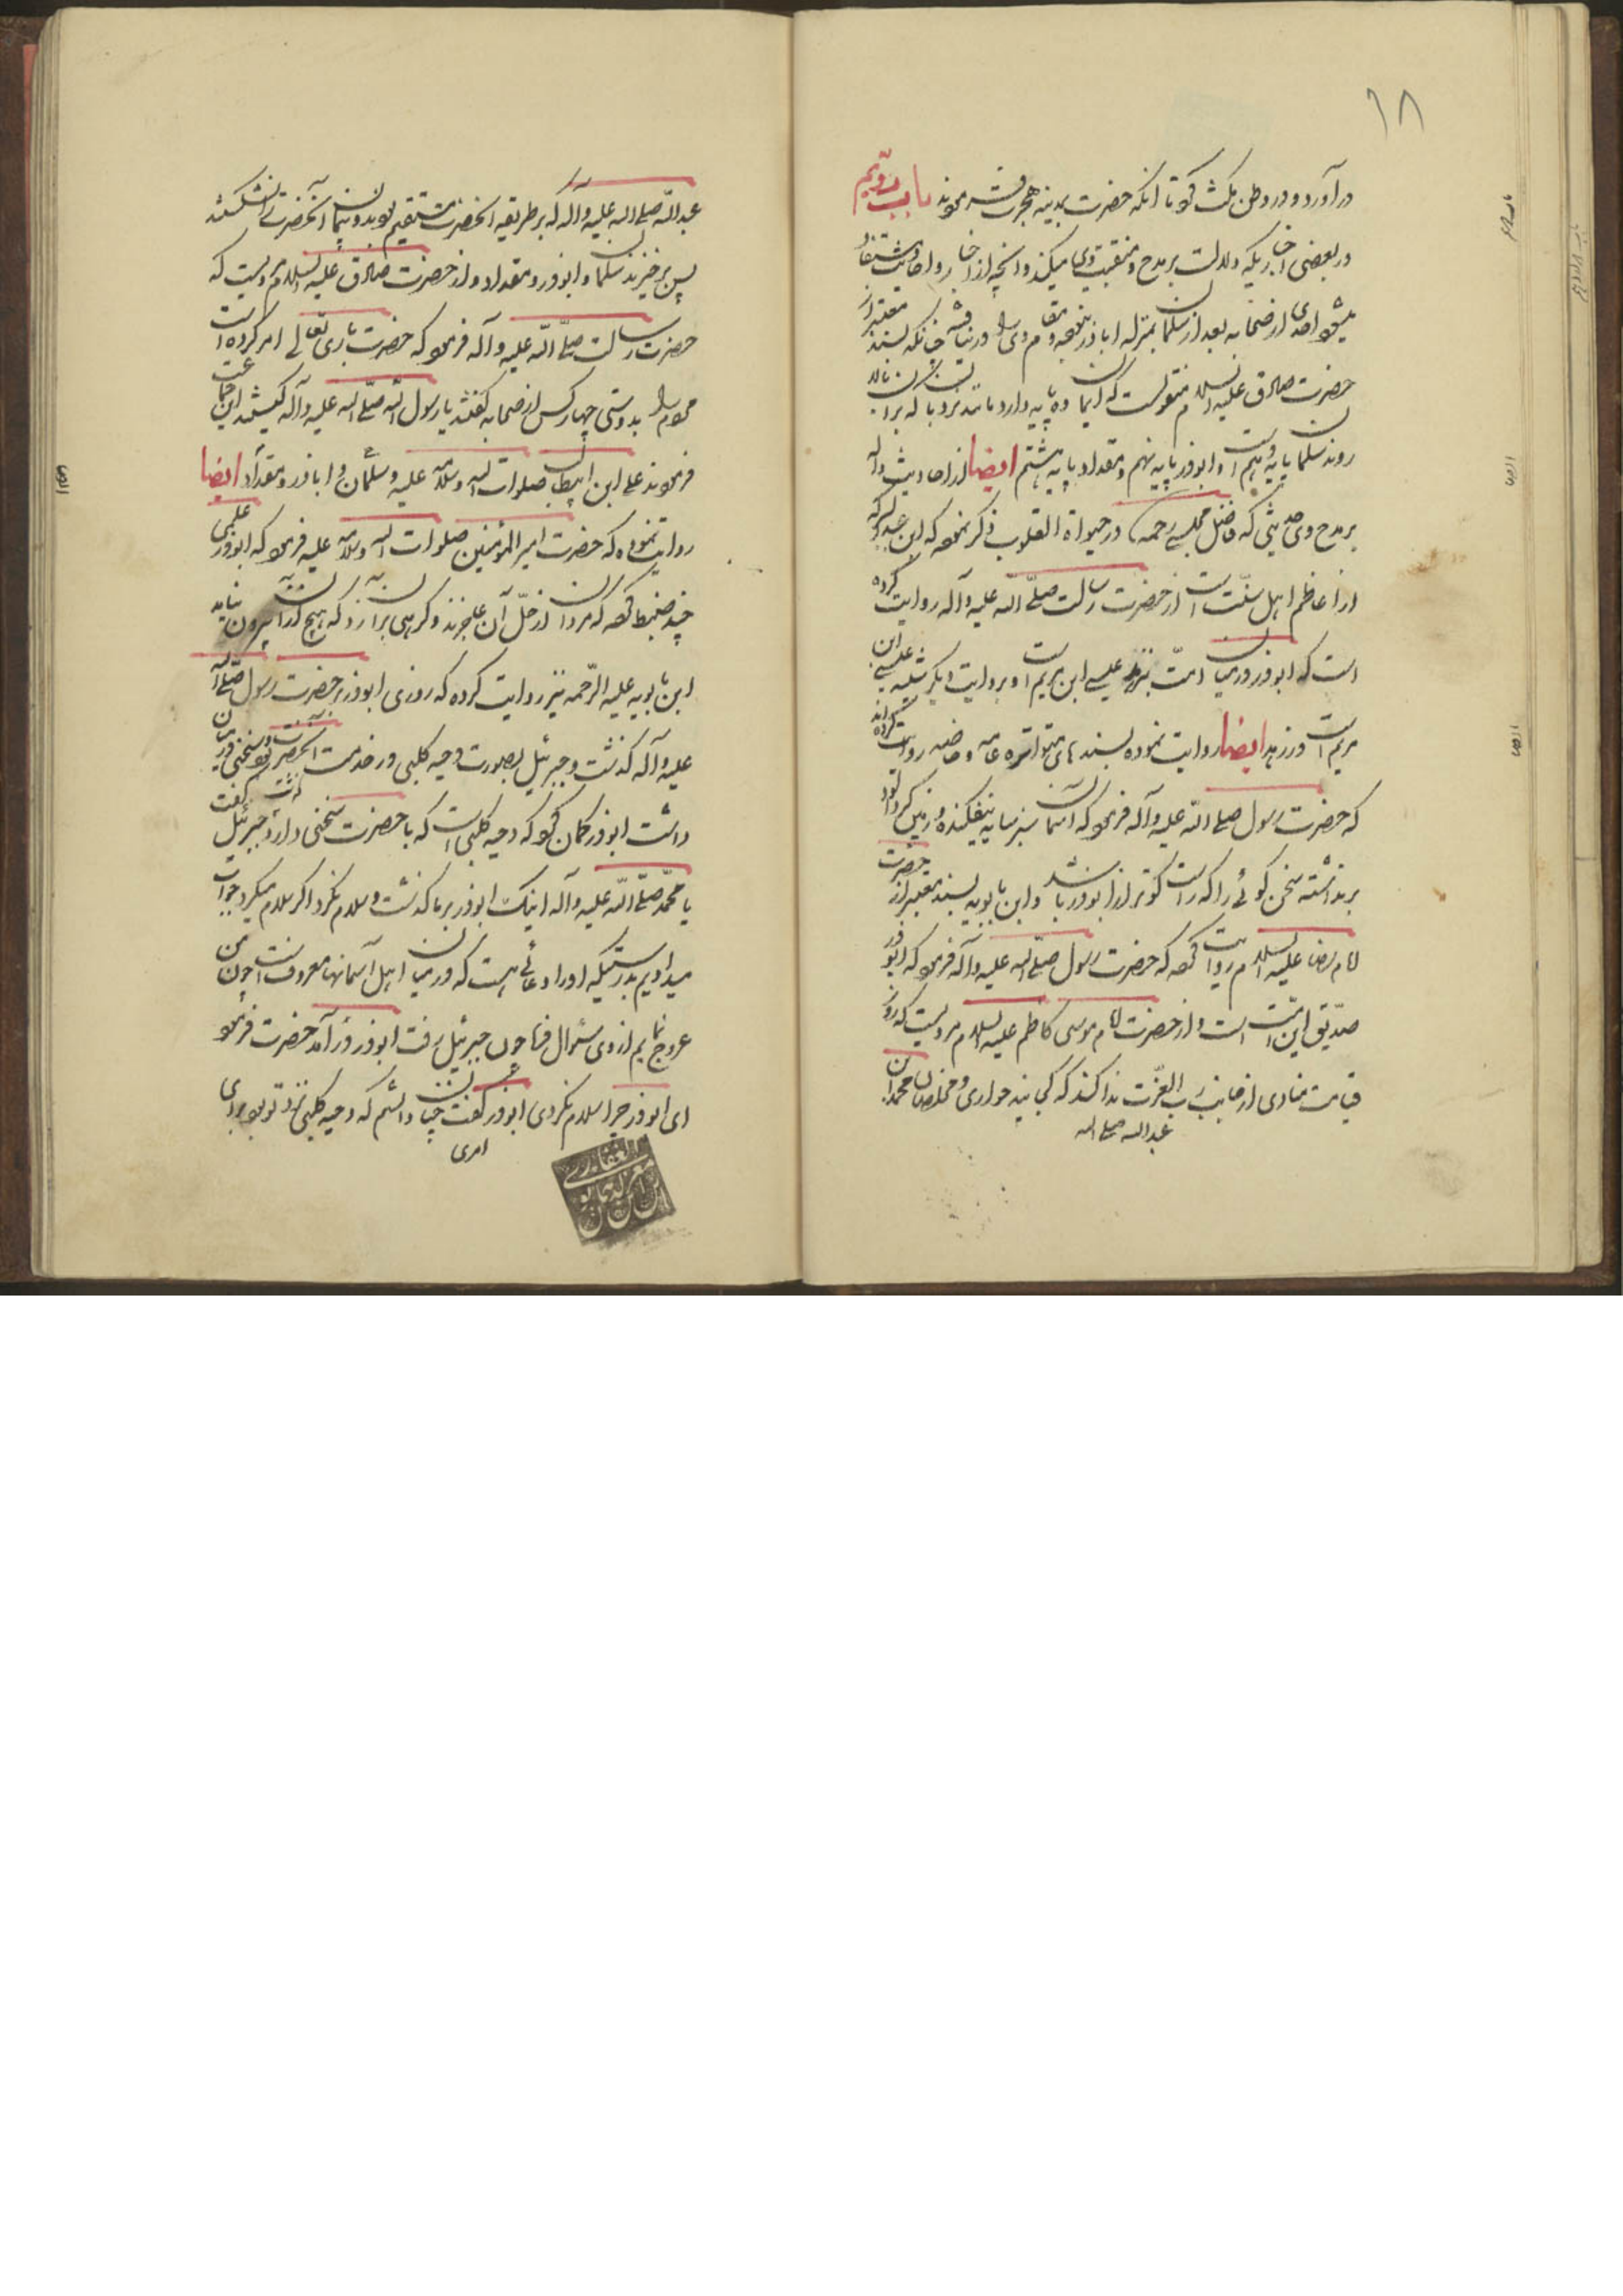 ۱۸
در آورد و در وطن مکث نمود تا انکه حضرت بمدینه هجرت فرمودند باب دویم
در بعضی اخباریکه دلالت بر مدح و منقبت وی میکند و انچه از اخبار و احادیث مستفاد
میشود احدی از صحابه بعد از سلمان بمنزله اباذر نبوده و مقام وی را در نیافته چنانکه بسند معتبر از
حضرت صادق علیه السلام منقولست که ایمان ده پایه دارد مانند نردبان که بر آن بالا
روند سلمان پایه دهم است و ابوذر پایه نهم و مقداد پایه هشتم ایضا از احادیث داله
بر مدح وی حدیثی که فاضل مجلسی رحمه در حیواة القلوب ذکر نموده که ابن عبدالبر که
از اعاظم اهل سنّت است از حضرت رسالت صلّی الله علیه وآله روایت کرده
است که ابوذر در میان امّت بزهد عیسی ابن مریم است و بروایت دیگر شبیه عیسی ابن
مریم است در زهد ایضا روایت نموده بسندهای متواتره عامه و خاصه روایت کرده اند
که حضرت رسول صلی الله علیه وآله فرمود که آسمان سبز سایه نیفکنده و زمین گرد آلود
بر نداشته سخن گوئی را که راست گوتر از ابوذر باشد و ابن بابویه بسند معتبر از حضرت
امام رضا علیه السلام روایت کرده که حضرت رسول صلّی الله علیه وآله فرمود که ابوذر
صدّیق این امّت است و از حضرت امام موسی کاظم علیه السلام مرویست که روز
قیامت منادی از جانب ربّ العزّت ندا کند که کجایند حواری و مخلصان محمد ابن
عبدالله صلی الله
عبدالله صلی الله علیه وآله که بر طریقه آنحضرت مستقیم بودند و پیمان آنحضرت را نشکستند
پس برخیزند سلمان و ابوذر و مقداد و از حضرت صادق علیه السلام مرویست که
حضرت رسالت صلّی الله علیه وآله فرمود که حضرت باری تعالی امر کرده است
مرا بدوستی چهار کس از صحابه گفتند یا رسول الله صلّی الله علیه وآله کیستند این جماعت
فرمودند علی ابن ابیطالب صلوات الله وسلامه علیه و سلمان و اباذر و مقداد ایضا
روایت نموده که حضرت امیر المؤمنین صلوات الله وسلامه علیه فرمود که ابوذر علمی
چند ضبط کرد که مردمان از حمل آن عاجزند و گرهی بر آن زد که هیچ از آن بیرون نیاید
ابن بابویه علیه الرّحمه نیز روایت کرده که روزی ابوذر بر حضرت رسول صلّی الله
علیه وآله گذشت و جبرئیل بصورت دحیه کلبی در خدمت آنحضرت بود و سخنی در میان
داشت ابوذر گمان کرد که دحیه کلبی است که با حضرت سخنی دارد جبرئیل گفت
یا محمّد صلّی الله علیه وآله اینک ابوذر بر ما گذشت و سلام نکرد اگر سلام میکرد جواب
میدادیم بدرستیکه او را دعائی هست که در میان اهل آسمانها معروفست چون من
عروج نمایم از وی سئوال فرما چون جبرئیل رفت ابوذر در آمد حضرت فرمود
ای ابوذر چرا سلام نکردی ابوذر گفت چنان دانستم که دحیه کلبی نزد تو بود برای
امری